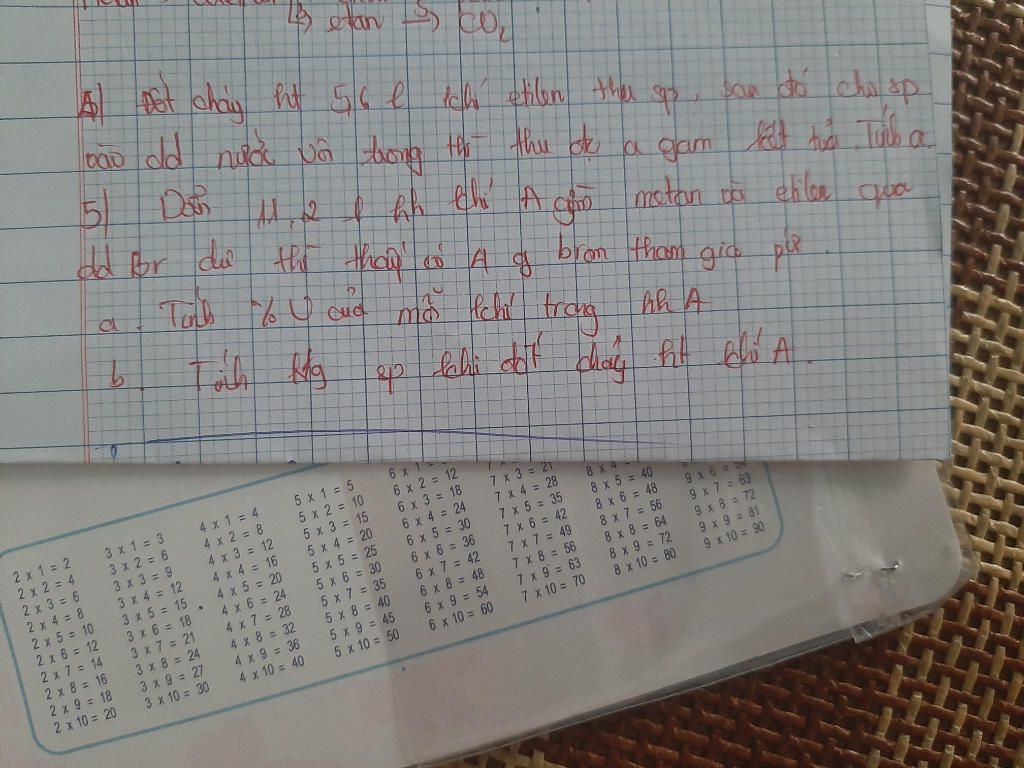 ↳ etan → CO₂
4) Đốt cháy ht 5,6 l khí etilen thu sp, sau đó cho sp
vào dd nước vôi trong thì thu đc a gam kết tủa. Tính a.
5) Dẫn 11,2 l hh khí A gồm metan và etilen qua
dd Br dư thì thấy có A g brom tham gia pứ.
a. Tính % V của mỗi khí trong hh A
b. Tính klg sp khi đốt cháy ht khí A.
6 x 2 = 12
7 x 3 = 21
8 x 5 = 40
9 x 7 = 63
5 x 1 = 5
6 x 3 = 18
7 x 4 = 28
8 x 6 = 48
9 x 8 = 72
4 x 1 = 4
5 x 2 = 10
6 x 4 = 24
7 x 5 = 35
8 x 7 = 56
9 x 9 = 81
3 x 1 = 3
4 x 2 = 8
5 x 3 = 15
6 x 5 = 30
7 x 6 = 42
8 x 8 = 64
9 x 10 = 90
2 x 1 = 2
3 x 2 = 6
4 x 3 = 12
5 x 4 = 20
6 x 6 = 36
7 x 7 = 49
8 x 9 = 72
2 x 2 = 4
3 x 3 = 9
4 x 4 = 16
5 x 5 = 25
6 x 7 = 42
7 x 8 = 56
8 x 10 = 80
2 x 3 = 6
3 x 4 = 12
4 x 5 = 20
5 x 6 = 30
6 x 8 = 48
7 x 9 = 63
2 x 4 = 8
3 x 5 = 15
4 x 6 = 24
5 x 7 = 35
6 x 9 = 54
7 x 10 = 70
2 x 5 = 10
3 x 6 = 18
4 x 7 = 28
5 x 8 = 40
6 x 10 = 60
2 x 6 = 12
3 x 7 = 21
4 x 8 = 32
5 x 9 = 45
2 x 7 = 14
3 x 8 = 24
4 x 9 = 36
5 x 10 = 50
2 x 8 = 16
3 x 9 = 27
4 x 10 = 40
2 x 9 = 18
3 x 10 = 30
2 x 10 = 20